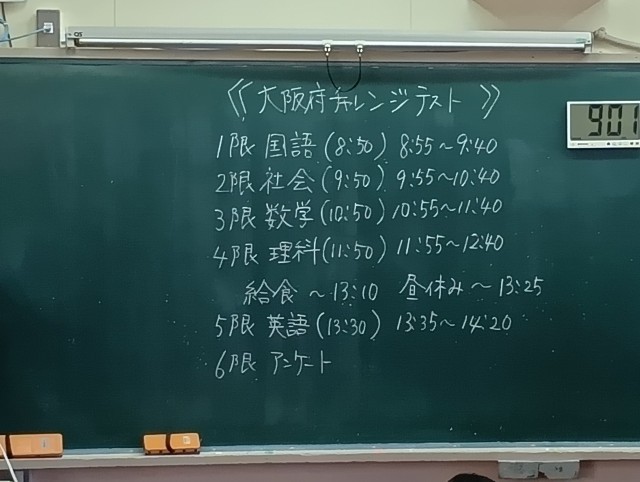 《大阪府チャレンジテスト》
1限 国語 (8:50) 8:55~9:40
2限 社会 (9:50) 9:55~10:40
3限 数学 (10:50) 10:55~11:40
4限 理科 (11:50) 11:55~12:40
給食 ~13:10 昼休み ~13:25
5限 英語 (13:30) 13:35~14:20
6限 アンケート
901